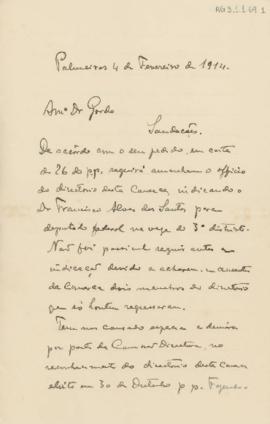 AG3.1.1.69.1
Palmeiras 4 de Fevereiro de 1914.
Amº Dr Gordo
Saudações.
De accôrdo com o seu pedido, em carta
de 26 do pp, seguirá amanhan o officio
do directorio desta Comarca indicando o
Dr Francisco Alves dos Santos para
deputado federal na vaga do 3º districto.
Não foi possivel seguir antes a
indicação devido a acharem-se ausentes
da Comarca dois membros do directorio
que só hontem regressaram.
Tem nos causado especie a demora
por parte da Commissão Directora, no
reconhecimento do directorio desta Comarca
eleito em 30 de Outubro p p.